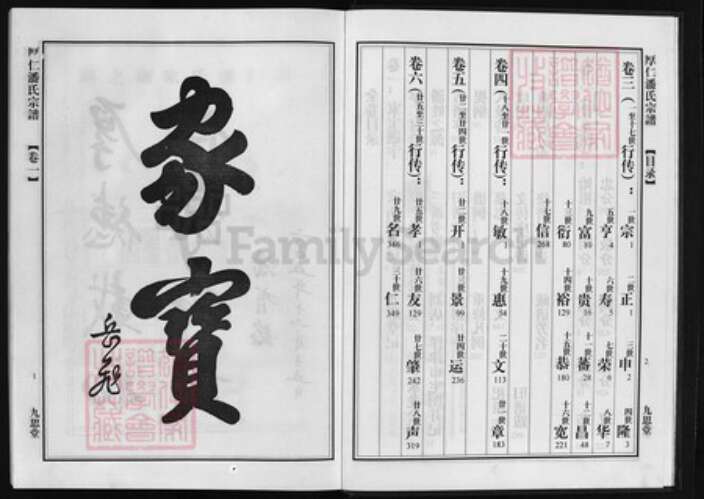 厚仁潘氏宗譜
【目录】
2
九思堂
卷三(一至十七世)行传):
一世 宗 1
二世 正 1
三世 申 2
四世 隆 3
五世 亨 4
六世 寿 5
七世 荣 6
八世 华 7
九世 富 10
十世 贵 16
十一世 蕃 28
十二世 昌 48
十三世 衍 80
十四世 裕 129
十五世 恭 180
十六世 宽 221
十七世 信 268
卷四(十八至廿一世)行传):
十八世 敏 1
十九世 惠 54
二十世 文 113
廿一世 章 183
卷五(廿二至廿四世)行传):
廿二世 开 1
廿三世 景 99
廿四世 运 236
卷六(廿五至三十世)行传):
廿五世 孝 1
廿六世 友 129
廿七世 肇 242
廿八世 声 319
廿九世 名 346
三十世 仁 349
家寶
岳飛
厚仁潘氏宗譜
【卷一】
1
九思堂
FamilySearch